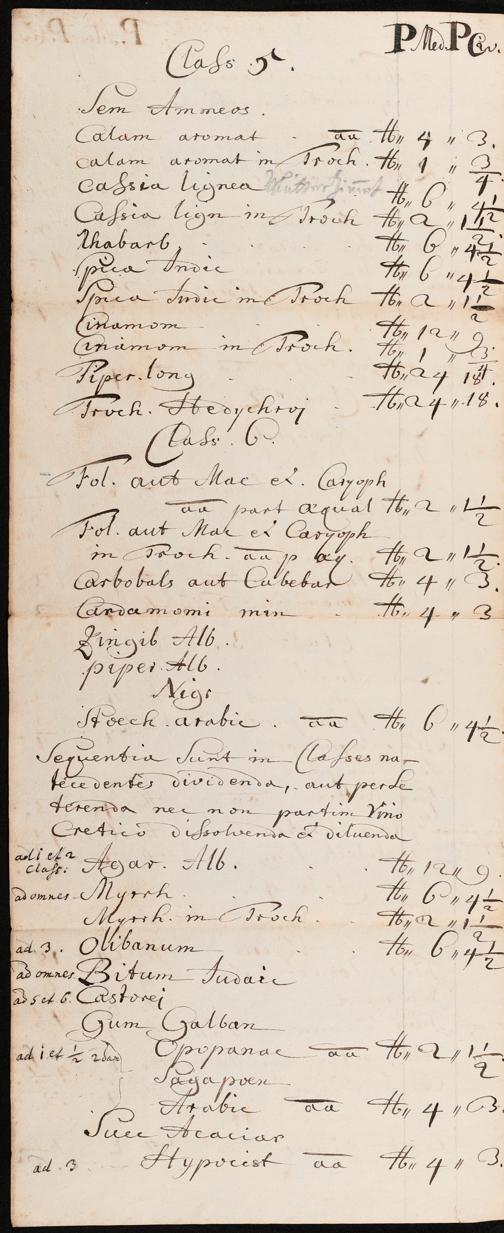 P Med. P Civ.
Class. 5.
Sem Ammeos.
Calam aromat . aa ℔ „ 4 „ 3.
calam aromat in Troch. ℔ „ 1 „ 3/4
Cassia lignea ℔ „ 6 „ 4 1/2
Cassia lign in Troch ℔ „ 2 „ 1 1/2
Rhabarb. ℔ „ 6 „ 4 1/2
Spica Indic ℔ „ 6 „ 4 1/2
Spica Indic in Troch ℔ „ 2 „ 1 1/2
Cinamom ℔ „ 12 „ 9.
Cinamom in Troch. ℔ „ 1 „ 3/4
Piper. long ℔ „ 24 „ 18.
Troch. Hedychroj ℔ „ 24 „ 18.
Class. 6.
Fol. aut Mac et. Caryoph
aa part æqual ℔ „ 2 „ 1 1/2
Fol. aut Mac et Caryoph
in Troch. aa p æq. ℔ „ 2 „ 1 1/2
Carbobals aut Cubebar ℔ „ 4 „ 3.
Cardamomi min ℔ „ 4 „ 3
Zingib Alb.
piper. Alb.
Nigr
Stoech. arabic . aa ℔ „ 6 „ 4 1/2
Sequentia Sunt in Classes
tecedentes dividenda, aut per se
terenda nec non partim Vino
Cretico dissolvenda et diluenda
ad 1 et 2 Class: Agar. Alb. ℔ „ 12 „ 9.
ad omnes Myrrh. ℔ „ 6 „ 4 1/2
Myrrh. in Troch ℔ „ 2 „ 1 1/2
ad 3. Olibanum ℔ „ 6 „ 4 1/2
ad omnes Bitum Judaic
ad 5 et 6. Castorej
Gum Galban
ad 1 et 1/2 2dam Opopanac aa ℔ „ 2 „ 1 1/2
Sagapoen
Arabic aa ℔ „ 4 „ 3.
Succ Acaciar
ad. 3 Hypocist aa ℔ „ 4 „ 3.